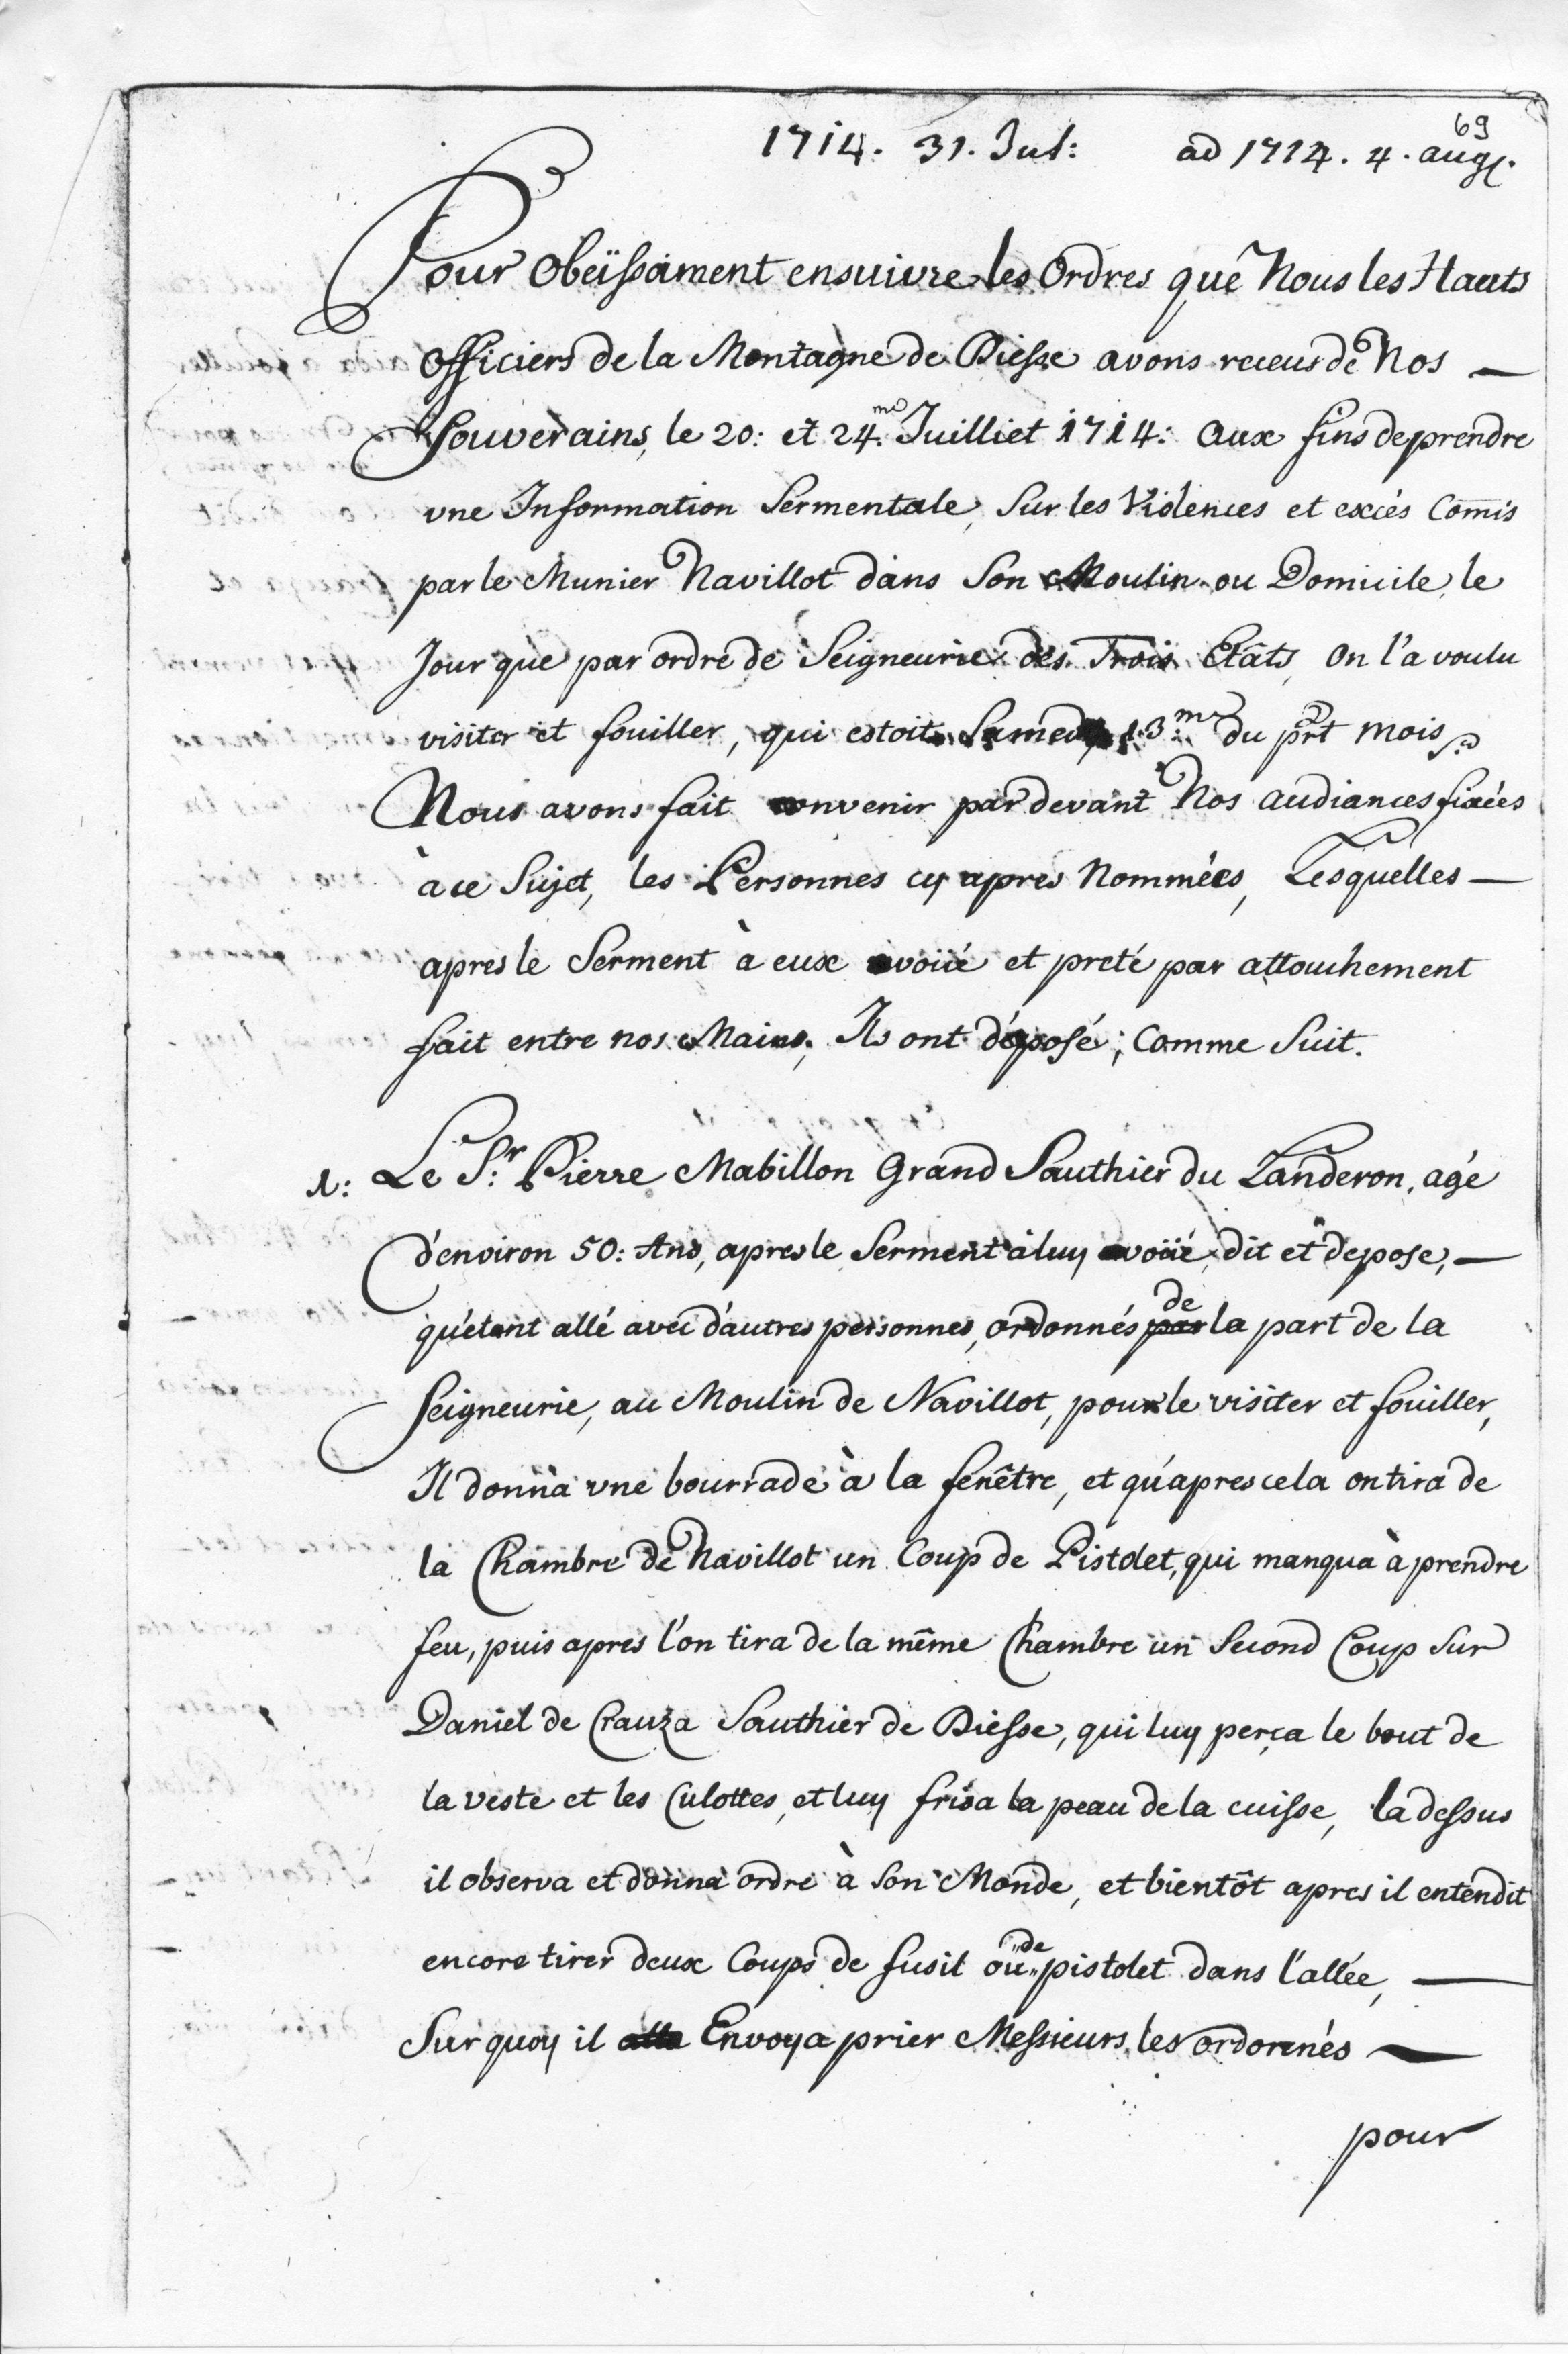 69
1714. 31. Jul: ad 1714. 4. aug.
Pour Obeïssament ensuivre les Ordres que Nous les Hauts
Officiers de la Montagne de Diesse avons receus de Nos —
Souverains, le 20: et 24.me Juilliet 1714: aux fins de prendre
vne Information Sermentale, Sur les Violences et excés Comis
par le Munier Navillot dans Son Moulin ou Domicile, le
Jour que par ordre de Seigneurie des Trois Etâts, on l'a voulu
visiter et fouiller, qui estoit Samedy 13:me du prt mois.
Nous avons fait convenir par devant Nos audiances fixées
à ce Sujet, les Personnes cy apres Nommées, Lesquelles —
apres le Serment à eux avoüé et preté par attouchement
fait entre nos Mains, Ils ont déposé; Comme Suit.
1: Le Sr: Pierre Mabillon Grand Sauthier du Landeron, agé
d'environ 50: Ans, apres le Serment à luy avoüé, dit et depose, —
qu'étant allé avec d'autres personnes, ordonnés par de la part de la
Seigneurie, au Moulin de Navillot, pour le visiter et fouiller,
Il donna vne bourrade à la fenêtre, et qu'apres cela on tira de
la Chambre de Navillot un Coup de Pistolet, qui manqua à prendre
feu, puis apres l'on tira de la même Chambre un Second Coup Sur
Daniel de Crauza Sauthier de Diesse, qui luy perça le bout de
la veste et les Culottes, et luy frisa la peau de la cuisse, la dessus
il observa et donna ordre à Son Monde, et bientôt apres il entendit
encore tirer deux Coups de fusil ou de pistolet dans l'allée, —
Sur quoy il alla Envoya prier Messieurs les ordonnés —
pour